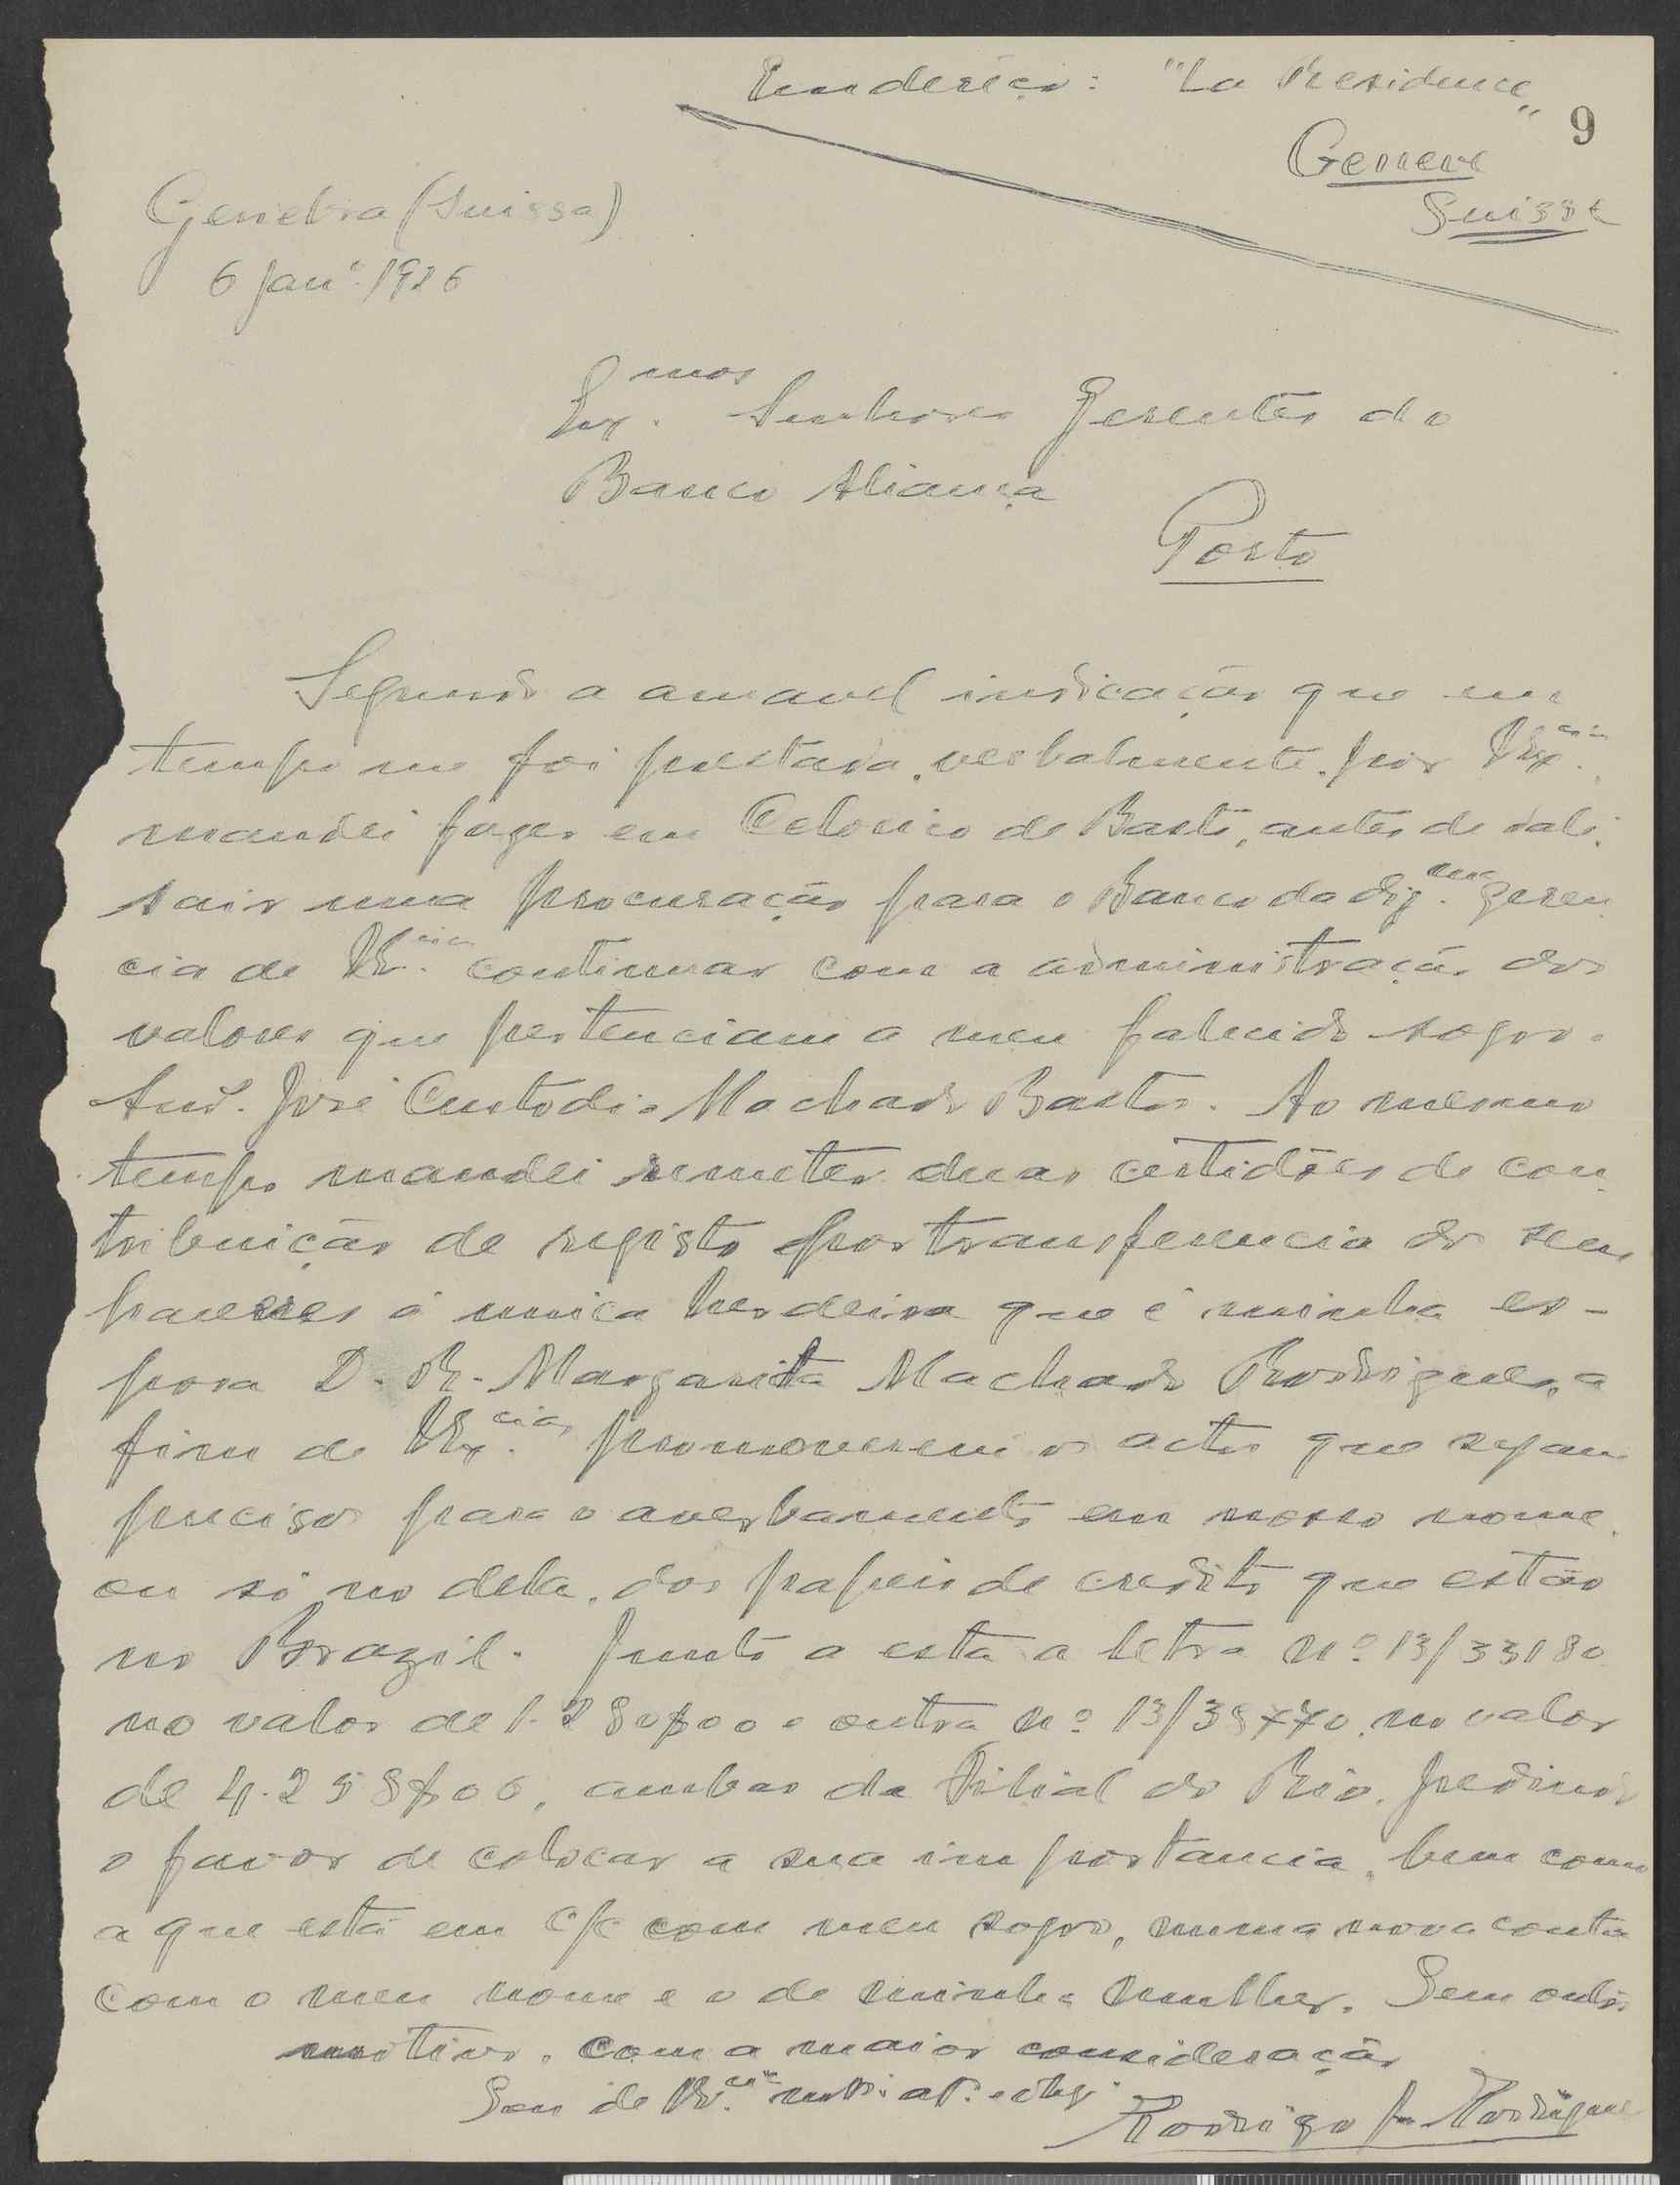 Endereço: "La Residence"
9
Geneve
Suisse
Genebra (Suissa)
6 Janº. 1926
Ex.mos Senhores Gerentes do
Banco Aliança
Porto
Segundo a amavel indicação que em
tempo me foi prestada, verbalmente, por VEx.cias
mandei fazer em Celorico de Basto, antes de dali
sair uma procuração para o Banco da dig.ma geren
cia de VE.cias continuar com a administração dos
valores que pertenciam a meu falecido sogro.
Snr. José Custodio Machado Bastos. Ao mesmo
tempo mandei remeter duas certidões de con
tribuição de registo por transferencia dos seus
haveres á unica herdeira que é minha es-
posa D. R. Margarita Machado Rodrigues, a
fim de VEx.cias promoverem os actos que sejam
precisos para o averbamento em nosso nome,
ou só no dela, dos papeis de credito que estão
no Brazil. Junto a esta a letra nº 13/33180
no valor de 1.280$00 e outra nº 13/ no valor
de 4.258$00, ambas da Filial do Rio, pedindo
o favor de colocar a sua importancia, bem como
a que está em c/c com meu sogro, numa nova conta
com o meu nome e o de minha mulher. Sem outro
motivo, com a maior consideração
Sou de VE.cias mtº. atº. e obgº.
Rodrigo J. Rodrigues